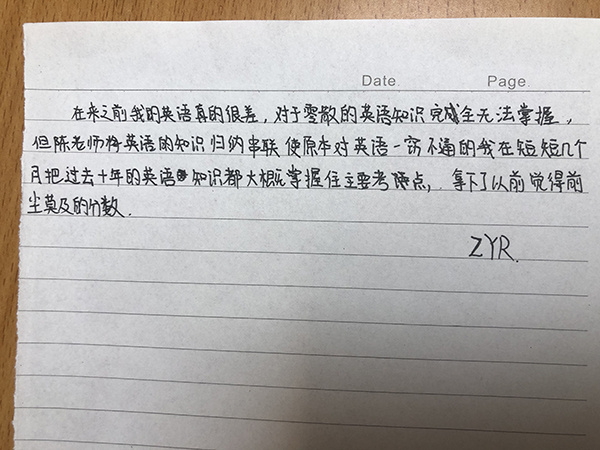 Date. Page.
在来之前我的英语真的很差，对于零散的英语知识完成全无法掌握，
但陈老师将英语的知识归纳串联使原本对英语一窍不通的我在短短几个
月把过去十年的英语知识都大概掌握住主要考点，拿下了以前觉得前
尘莫及的分数.
ZYR.